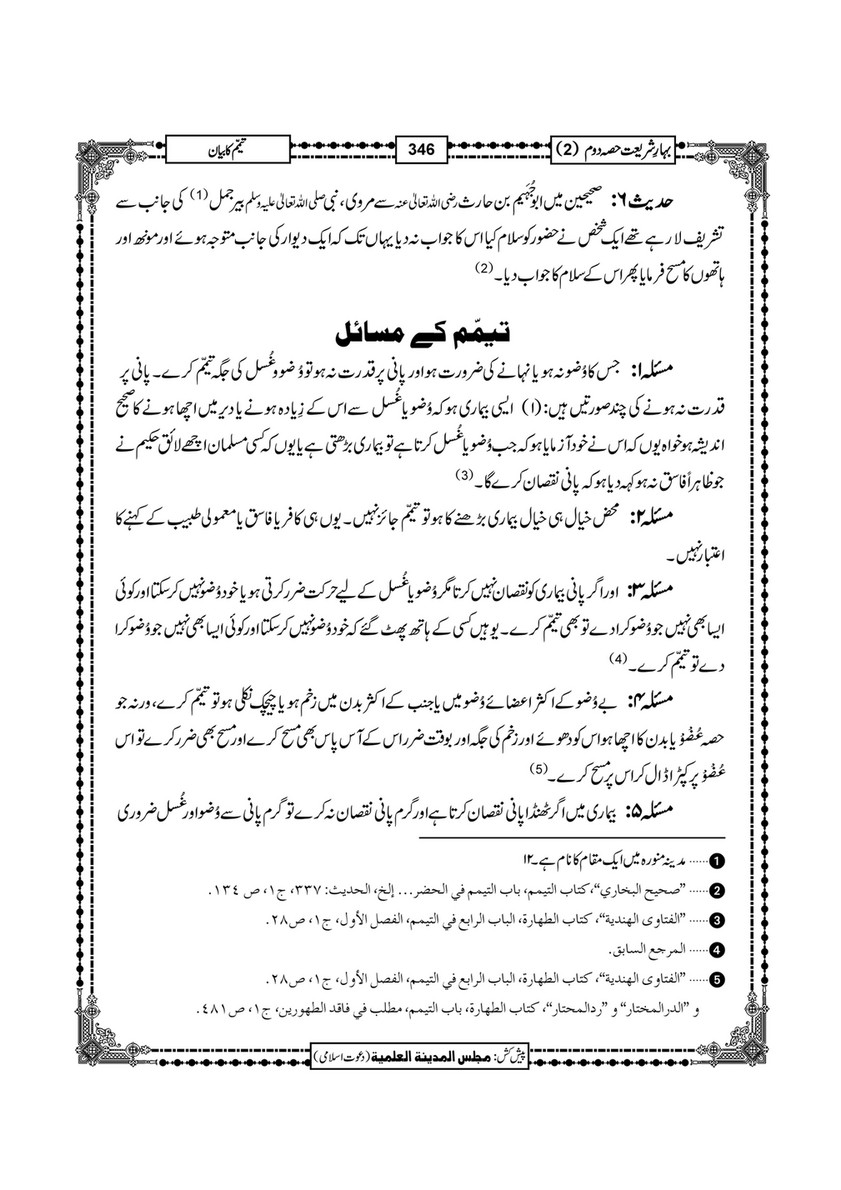 بہارِ شریعت حصہ دوم (2)
346
تیمّم کا بیان
حدیث ۶: صحیحین میں ابو جُہَیم بن حارث رضی اللہ تعالیٰ عنہ سے مروی، نبی صلی اللہ تعالیٰ علیہ وسلم بیر جمل (1) کی جانب سے
تشریف لا رہے تھے ایک شخص نے حضور کو سلام کیا اس کا جواب نہ دیا یہاں تک کہ ایک دیوار کی جانب متوجہ ہوئے اور مونھ اور
ہاتھوں کا مسح فرمایا پھر اس کے سلام کا جواب دیا۔ (2)
تیمّم کے مسائل
مسئلہ ۱: جس کا وُضو نہ ہو یا نہانے کی ضرورت ہو اور پانی پر قدرت نہ ہو تو وُضو و غُسل کی جگہ تیمّم کرے۔ پانی پر
قدرت نہ ہونے کی چند صورتیں ہیں: (۱) ایسی بیماری ہو کہ وُضو یا غُسل سے اس کے زِیادہ ہونے یا دیر میں اچھا ہونے کا صحیح
اندیشہ ہو خواہ یوں کہ اس نے خود آزمایا ہو کہ جب وُضو یا غُسل کرتا ہے تو بیماری بڑھتی ہے یا یوں کہ کسی مسلمان اچھے لائق حکیم نے
جو ظاہراً فاسق نہ ہو کہہ دیا ہو کہ پانی نقصان کرے گا۔ (3)
مسئلہ ۲: محض خیال ہی خیال بیماری بڑھنے کا ہو تو تیمّم جائز نہیں۔ یوں ہی کافر یا فاسق یا معمولی طبیب کے کہنے کا
اعتبار نہیں۔
مسئلہ ۳: اور اگر پانی بیماری کو نقصان نہیں کرتا مگر وُضو یا غُسل کے لیے حرکت ضرر کرتی ہو یا خود وُضو نہیں کر سکتا اور کوئی
ایسا بھی نہیں جو وُضو کرا دے تو بھی تیمّم کرے۔ یوہیں کسی کے ہاتھ پھٹ گئے کہ خود وُضو نہیں کر سکتا اور کوئی ایسا بھی نہیں جو وُضو کرا
دے تو تیمّم کرے۔ (4)
مسئلہ ۴: بے وُضو کے اکثر اعضائے وُضو میں یا جنب کے اکثر بدن میں زخم ہو یا چیچک نکلی ہو تو تیمّم کرے، ورنہ جو
حصہ عُضْوْ یا بدن کا اچھا ہو اس کو دھوئے اور زخم کی جگہ اور بوقت ضرر اس کے آس پاس بھی مسح کرے اور مسح بھی ضرر کرے تو اس
عُضْوْ پر کپڑا ڈال کر اس پر مسح کرے۔ (5)
مسئلہ ۵: بیماری میں اگر ٹھنڈا پانی نقصان کرتا ہے اور گرم پانی نقصان نہ کرے تو گرم پانی سے وُضو اور غُسل ضروری
1 ...... مدینہ منورہ میں ایک مقام کا نام ہے۔ ۱۲
2 ...... ”صحیح البخاري“، کتاب التیمم، باب التیمم في الحضر... إلخ، الحدیث: ۳۳۷، ج۱، ص ۱۳٤.
3 ...... ”الفتاوی الھندیة“، کتاب الطھارة، الباب الرابع في التیمم، الفصل الأول، ج۱، ص۲۸.
4 ...... المرجع السابق.
5 ...... ”الفتاوی الھندیة“، کتاب الطھارة، الباب الرابع في التیمم، الفصل الأول، ج۱، ص۲۸.
و ”الدرالمختار“ و ”ردالمحتار“، کتاب الطھارة، باب التیمم، مطلب في فاقد الطھورین، ج۱، ص٤۸۱.
پیش کش: مجلس المدینۃ العلمیۃ (دعوت اسلامی)